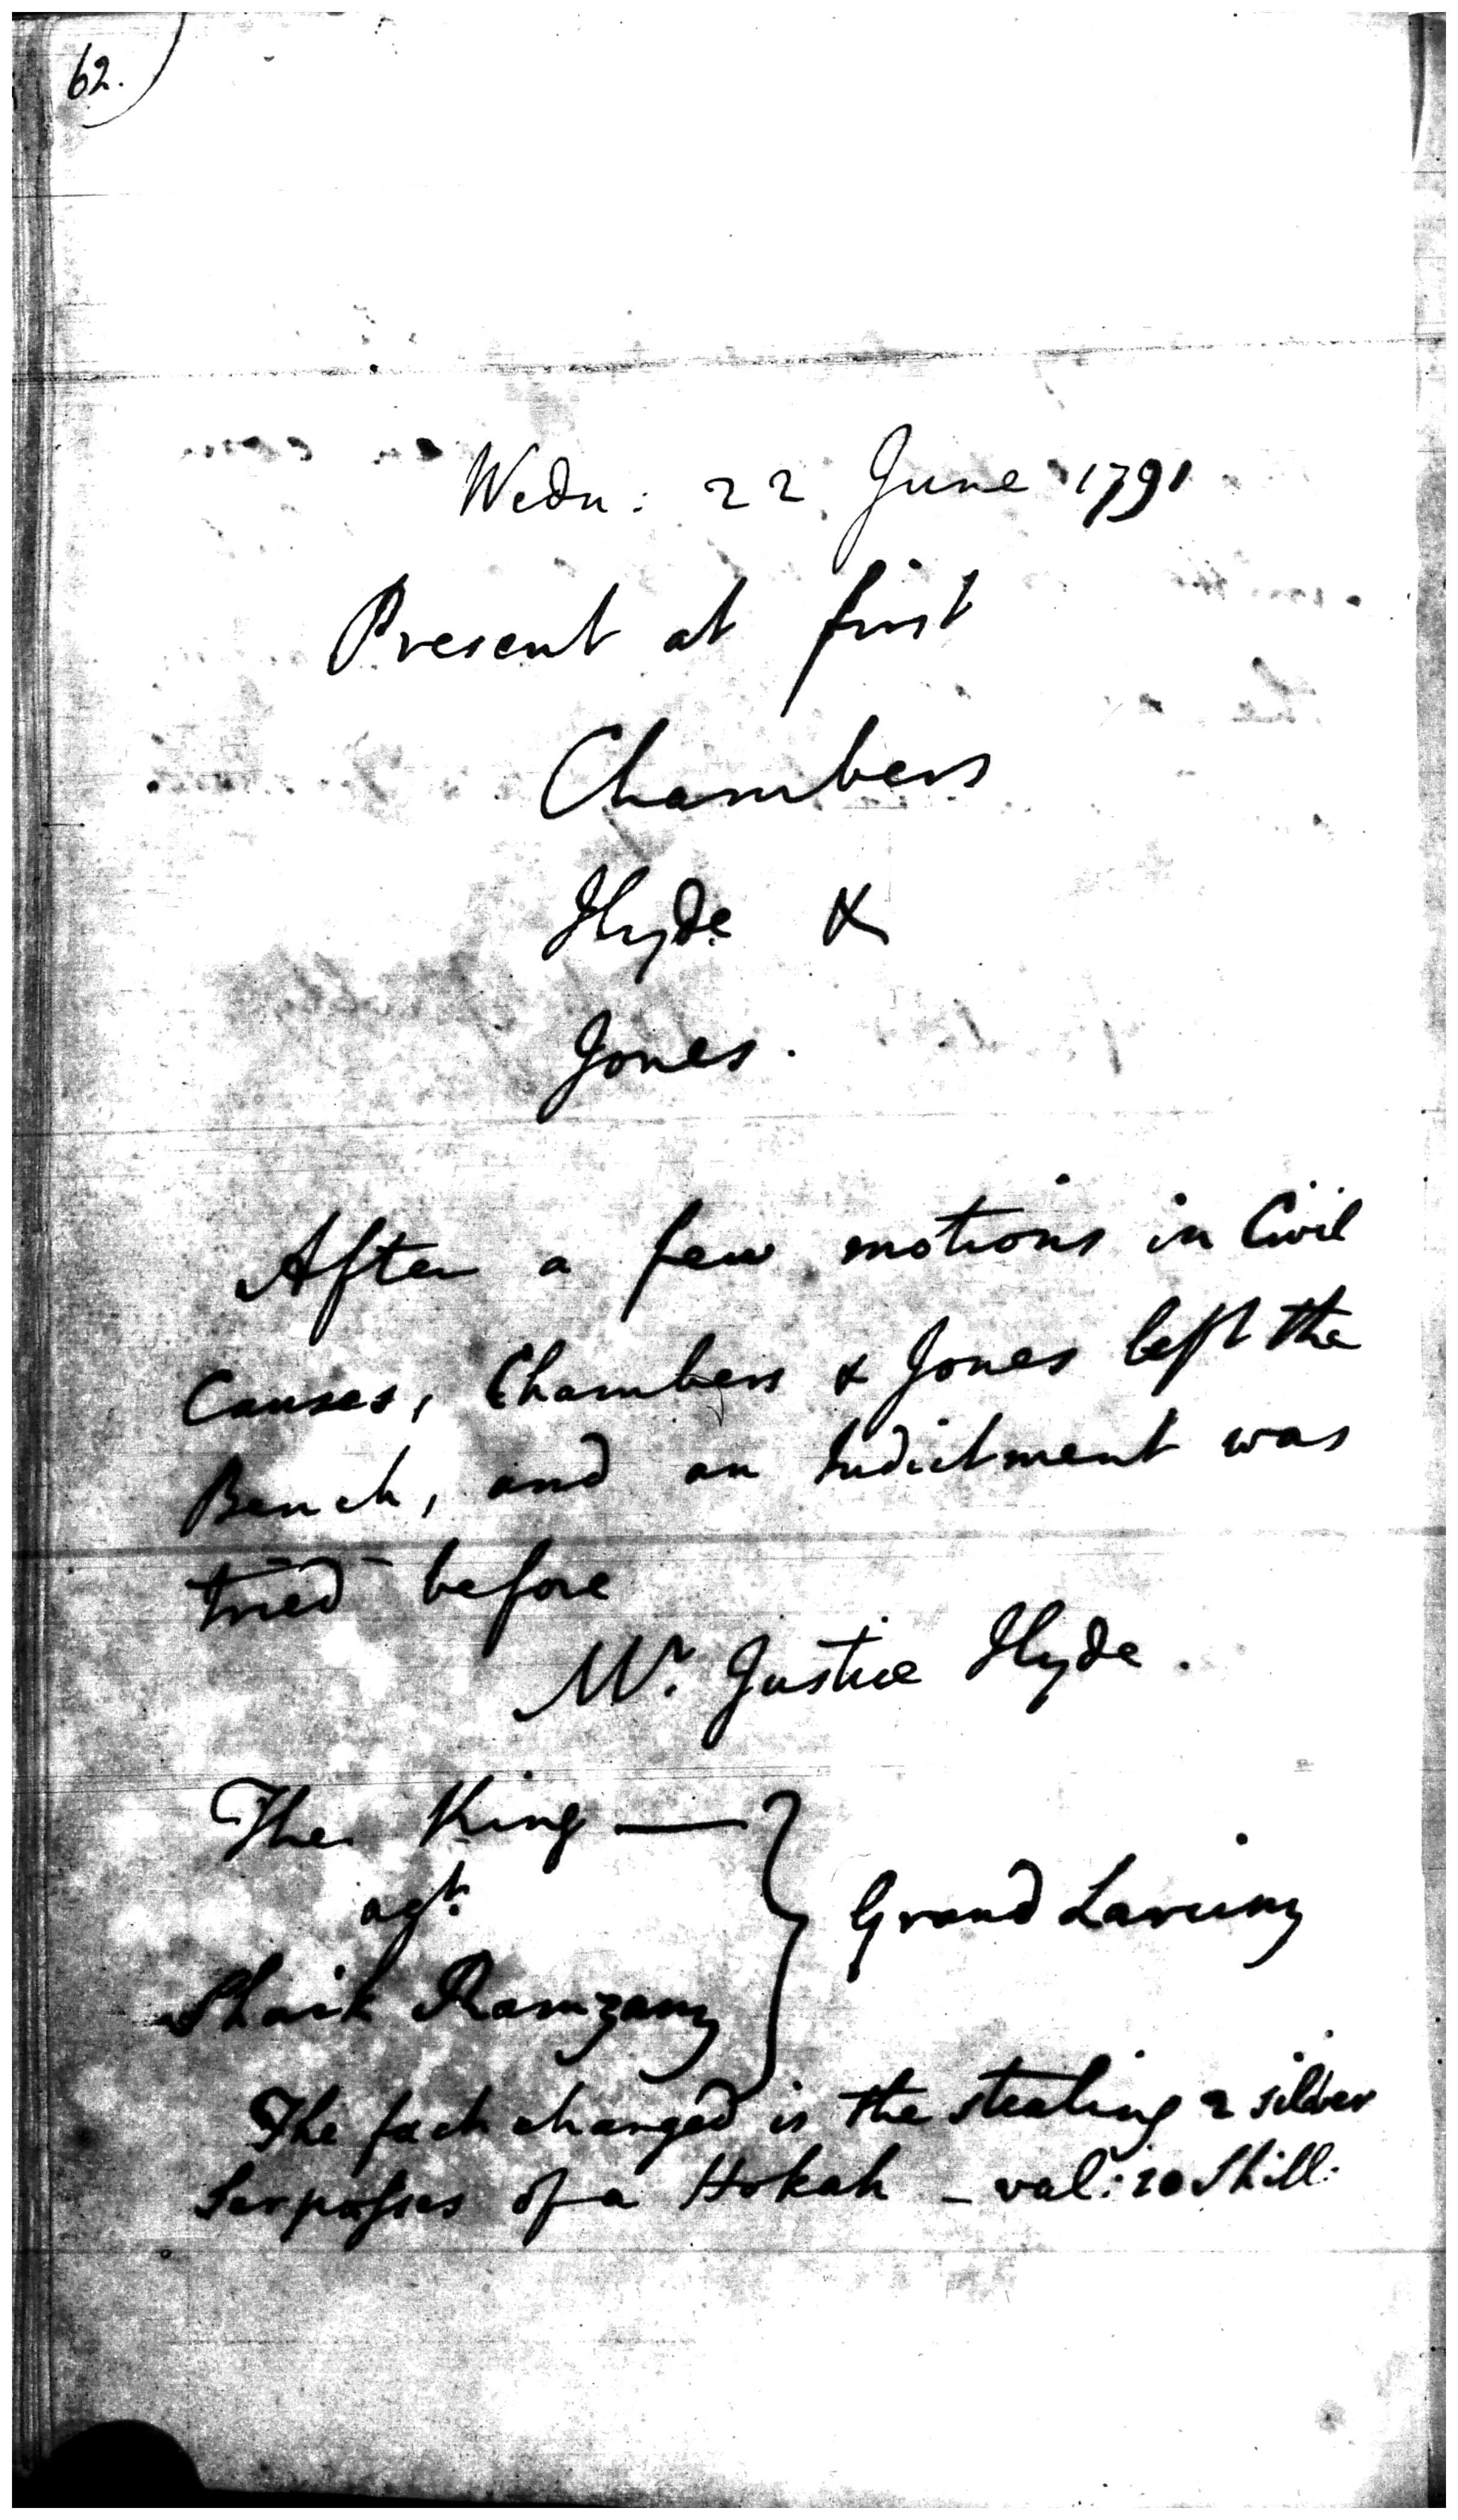 62.
Wedn: 22 June 1791
Present at first
Chambers
Hyde &
Jones.
After a few motions in Civil
Causes, Chambers & Jones left the
Bench, and an Indictment was
tried before
Mr. Justice Hyde.
The King —
agt.
Shaik Ramzany
Grand Larceny
The fact charged is the stealing 2 silver
Serposses of a Hokah – val: 20 Shill: